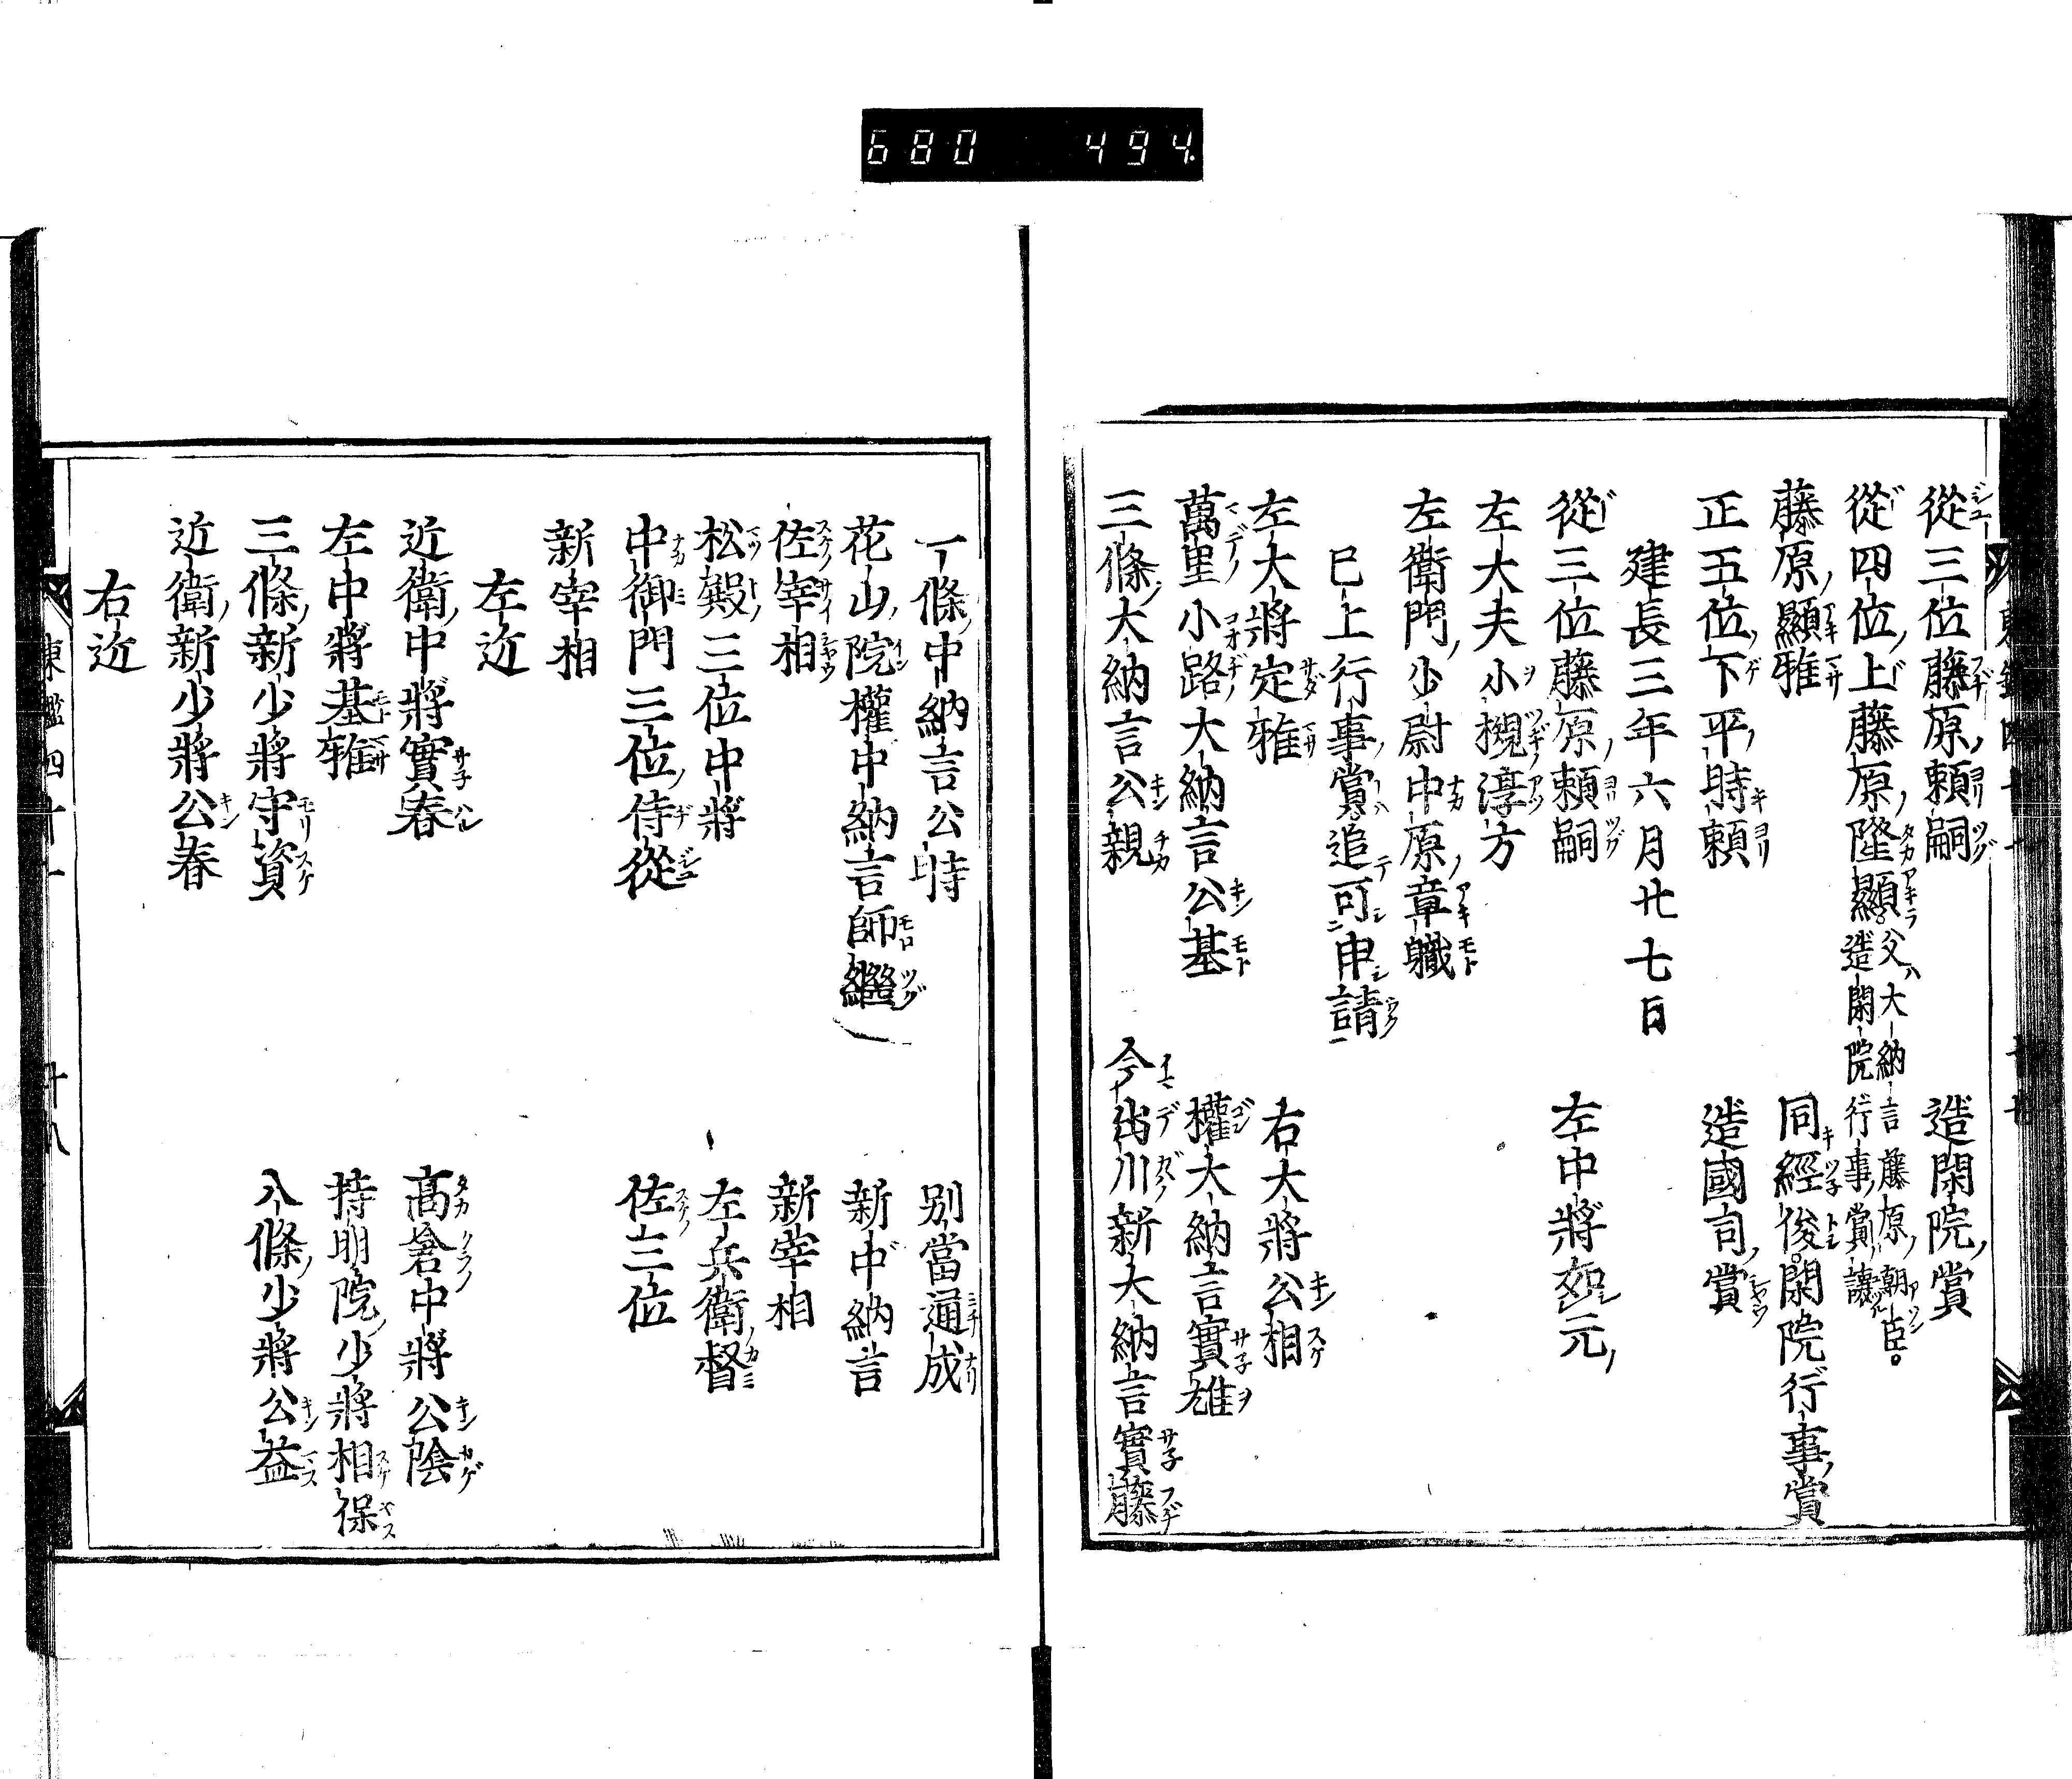 680 494
從三位藤原頼嗣 造閑院賞
從四位上藤原隆顯 父大納言藤原朝臣。造閑院行事賞讓
藤原顯雅 同經俊。閑院行事賞
正五位下平時頼 造國司賞
建長三年六月廿七日
從三位藤原頼嗣 左中將如元
左大夫小槻淳方
左衛門少尉中原章職
已上行事賞追可申請
左大將定雅 右大將公相
萬里小路大納言公基 權大納言實雄
三條大納言公親 今出川新大納言實藤
一條中納言公時 別當通成
花山院權中納言師繼 新中納言
佐宰相 新宰相
松殿三位中將 左兵衛督
中御門三位侍從 佐三位
新宰相
左近
近衛中將實春 高倉中將公陰
左中將基雅 持明院少將相保
三條新少將守資 八條少將公益
近衛新少將公春
右近
東鑑四十一 廿八